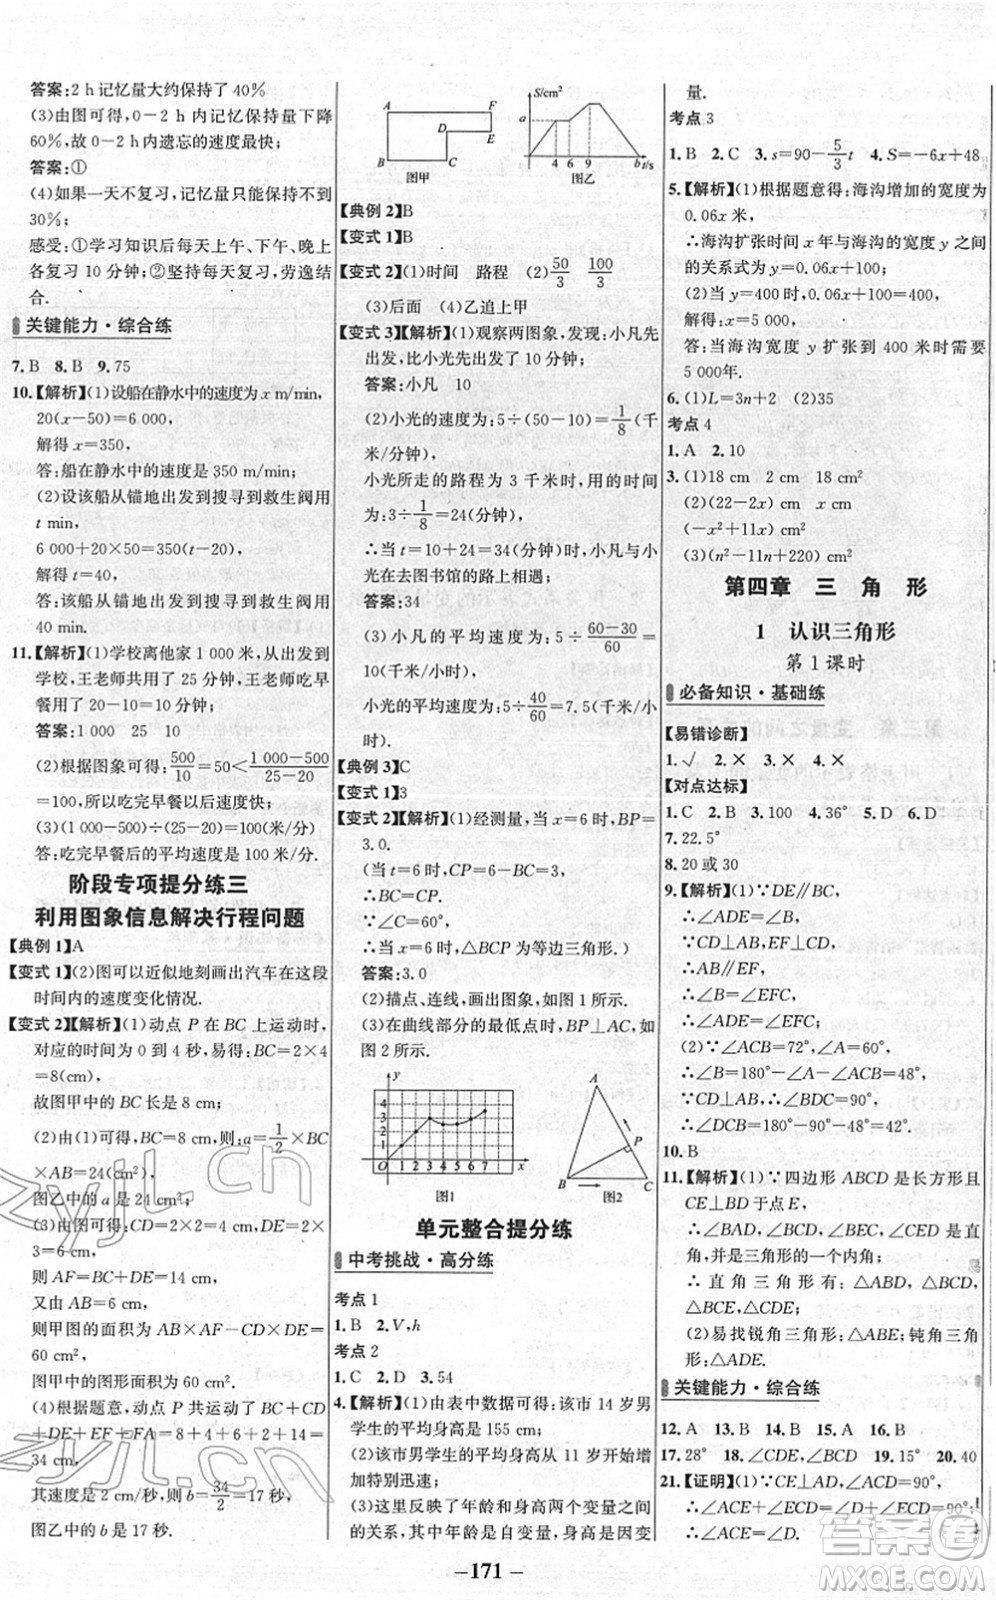 答案:2 h记忆量大约保持了40%
(3)由图可得,0-2 h内记忆保持量下降
60%,故0-2 h内遗忘的速度最快;
答案:①
(4)如果一天不复习,记忆量只能保持不到
30%;
感受:①学习知识后每天上午、下午、晚上
各复习10分钟;②坚持每天复习,劳逸结
合.
关键能力·综合练
7.B 8.B 9.75
10.【解析】(1)设船在静水中的速度为x m/min,
20(x-50)=6 000,
解得x=350,
答:船在静水中的速度是350 m/min;
(2)设该船从锚地出发到搜寻到救生阀用
t min,
6 000+20×50=350(t-20),
解得:t=40,
答:该船从锚地出发到搜寻到救生阀用
40 min.
11.【解析】(1)学校离他家1 000米,从出发到
学校,王老师共用了25分钟,王老师吃早
餐用了20-10=10(分钟);
答案:1000 25 10
(2)根据图象可得:500/10=50<(1 000-500)/(25-20)
=100,所以吃完早餐以后速度快;
(3)(1 000-500)÷(25-20)=100(米/分)
答:吃完早餐后的平均速度是100米/分.
阶段专项提分练三
利用图象信息解决行程问题
【典例1】A
【变式1】(2)图可以近似地刻画出汽车在这段
时间内的速度变化情况.
【变式2】【解析】(1)动点P在BC上运动时,
对应的时间为0到4秒,易得:BC=2×4
=8(cm);
故图甲中的BC长是8 cm;
(2)由(1)可得,BC=8 cm,则:a=1/2×BC
×AB=24(cm²);
图乙中的a是24 cm²;
(3)由图可得:CD=2×2=4 cm,DE=2×3
=6 cm,
则AF=BC+DE=14 cm,
又由AB=6 cm,
则甲图的面积为AB×AF-CD×DE=
60 cm²,
图甲中的图形面积为60 cm²;
(4)根据题意,动点P共运动了BC+CD
+DE+EF+FA=8+4+6+2+14=
34 cm,
其速度是2 cm/秒,则b=34/2=17秒,
图乙中的b是17秒.
A F
D E
B C
图甲
S/cm²
a
O 4 6 9 b t/s
图乙
【典例2】B
【变式1】B
【变式2】(1)时间 路程 (2)50/3 100/3
(3)后面 (4)乙追上甲
【变式3】【解析】(1)观察两图象,发现:小凡先
出发,比小光先出发了10分钟;
答案:小凡 10
(2)小光的速度为:5÷(50-10)=1/8(千
米/分钟),
小光所走的路程为3千米时,用的时间
为:3÷1/8=24(分钟),
∴当t=10+24=34(分钟)时,小凡与小
光在去图书馆的路上相遇;
答案:34
(3)小凡的平均速度为:5÷(60-30)/60=
10(千米/小时),
小光的平均速度为:5÷40/60=7.5(千米/小
时).
【典例3】C
【变式1】3
【变式2】【解析】(1)经测量,当x=6时,BP=
3.0.
(当t=6时,CP=6-BC=3,
∴BC=CP.
∵∠C=60°,
∴当x=6时,△BCP为等边三角形.)
答案:3.0
(2)描点、连线,画出图象,如图1所示.
(3)在曲线部分的最低点时,BP⊥AC,如
图2所示.
y
4
3
2
1
O 1 2 3 4 5 6 7 x
图1
A
P
B C
图2
单元整合提分练
中考挑战·高分练
考点1
1.B 2.V,h
考点2
1.C 2.D 3.54
4.【解析】(1)由表中数据可得:该市14岁男
学生的平均身高是155 cm;
(2)该市男学生的平均身高从11岁开始
增加特别迅速;
(3)这里反映了年龄和身高两个变量之间
的关系,其中年龄是自变量,身高是因变
量.
考点3
1.B 2.C 3.s=90-5/3t 4.S=-6x+48
5.【解析】(1)根据题意得:海沟增加的宽度为
0.06x米,
∴海沟扩张时间x年与海沟的宽度y之间
的关系式为y=0.06x+100;
(2)当y=400时,0.06x+100=400,
解得x=5 000,
答:当海沟宽度y扩张到400米时需要
5 000年.
6.(1)L=3n+2 (2)35
考点4
1.A 2.10
3.(1)18 cm 2 cm x cm
(2)(22-2x) cm x cm
(-x²+11x) cm²
(3)(n²-11n+220) cm²
第四章 三 角 形
1 认识三角形
第1课时
必备知识·基础练
【易错诊断】
1.√ 2.× 3.× 4.×
【对点达标】
1.C 2.B 3.100 4.36° 5.D 6.D
7.22.5°
8.20或30
9.【解析】(1)∵DE∥BC,
∴∠ADE=∠B,
∵CD⊥AB,EF⊥AB,
∴AB∥EF,
∴∠B=∠EFC,
∴∠ADE=∠EFC;
(2)∵∠ACB=72°,∠A=60°,
∴∠B=180°-∠A-∠ACB=48°,
∵CD⊥AB,∴∠BDC=90°,
∴∠DCB=180°-90°-48°=42°.
10.B
11.【解析】(1)∵四边形ABCD是长方形且
CE⊥BD于点E,
∴∠BAD,∠BCD,∠BEC,∠CED是直
角,并且是三角形的一个内角;
∴直角三角形有:△ABD,△BCD,
△BCE,△CED;
(2)易找锐角三角形:△ABE;钝角三角
形:△ADE.
关键能力·综合练
12.A 13.B 14.B 15.A 16.B
17.28° 18.∠CDE,∠BCD 19.15° 20.40
21.【证明】(1)∵CE⊥AD,∠ACD=90°,
∴∠ACE+∠ECD=∠D+∠ECD=90°,
∴∠ACE=∠D.
—171—
zyjl.cn
zyjl.cn
答案圈
MXQE.COM